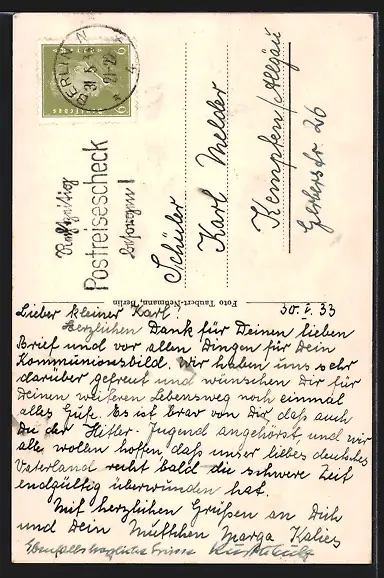 BERLIN N
31.5.
6
Rechtzeitig
Postreisescheck
besorgen!
Schüler
Karl Melder
Kempten/Allgäu
Gerberstr. 26
Foto Taubert-Neumann, Berlin
30.5.33
Lieber kleiner Karl!
Herzlichen Dank für Deinen lieben
Brief und vor allen Dingen für Dein
Kommunionsbild. Wir haben uns sehr
darüber gefreut und wünschen Dir für
Deinen weiteren Lebensweg noch einmal
alles Gute. Es ist brav von Dir, daß auch
Du der Hitler-Jugend angehörst, und wir
alle wollen hoffen, daß unser liebes deutsches
Vaterland recht bald die schwere Zeit
endgültig überwunden hat.
Mit herzlichen Grüßen an Dich
und Dein Muttchen Marga
Ebenfalls herzliche Grüsse